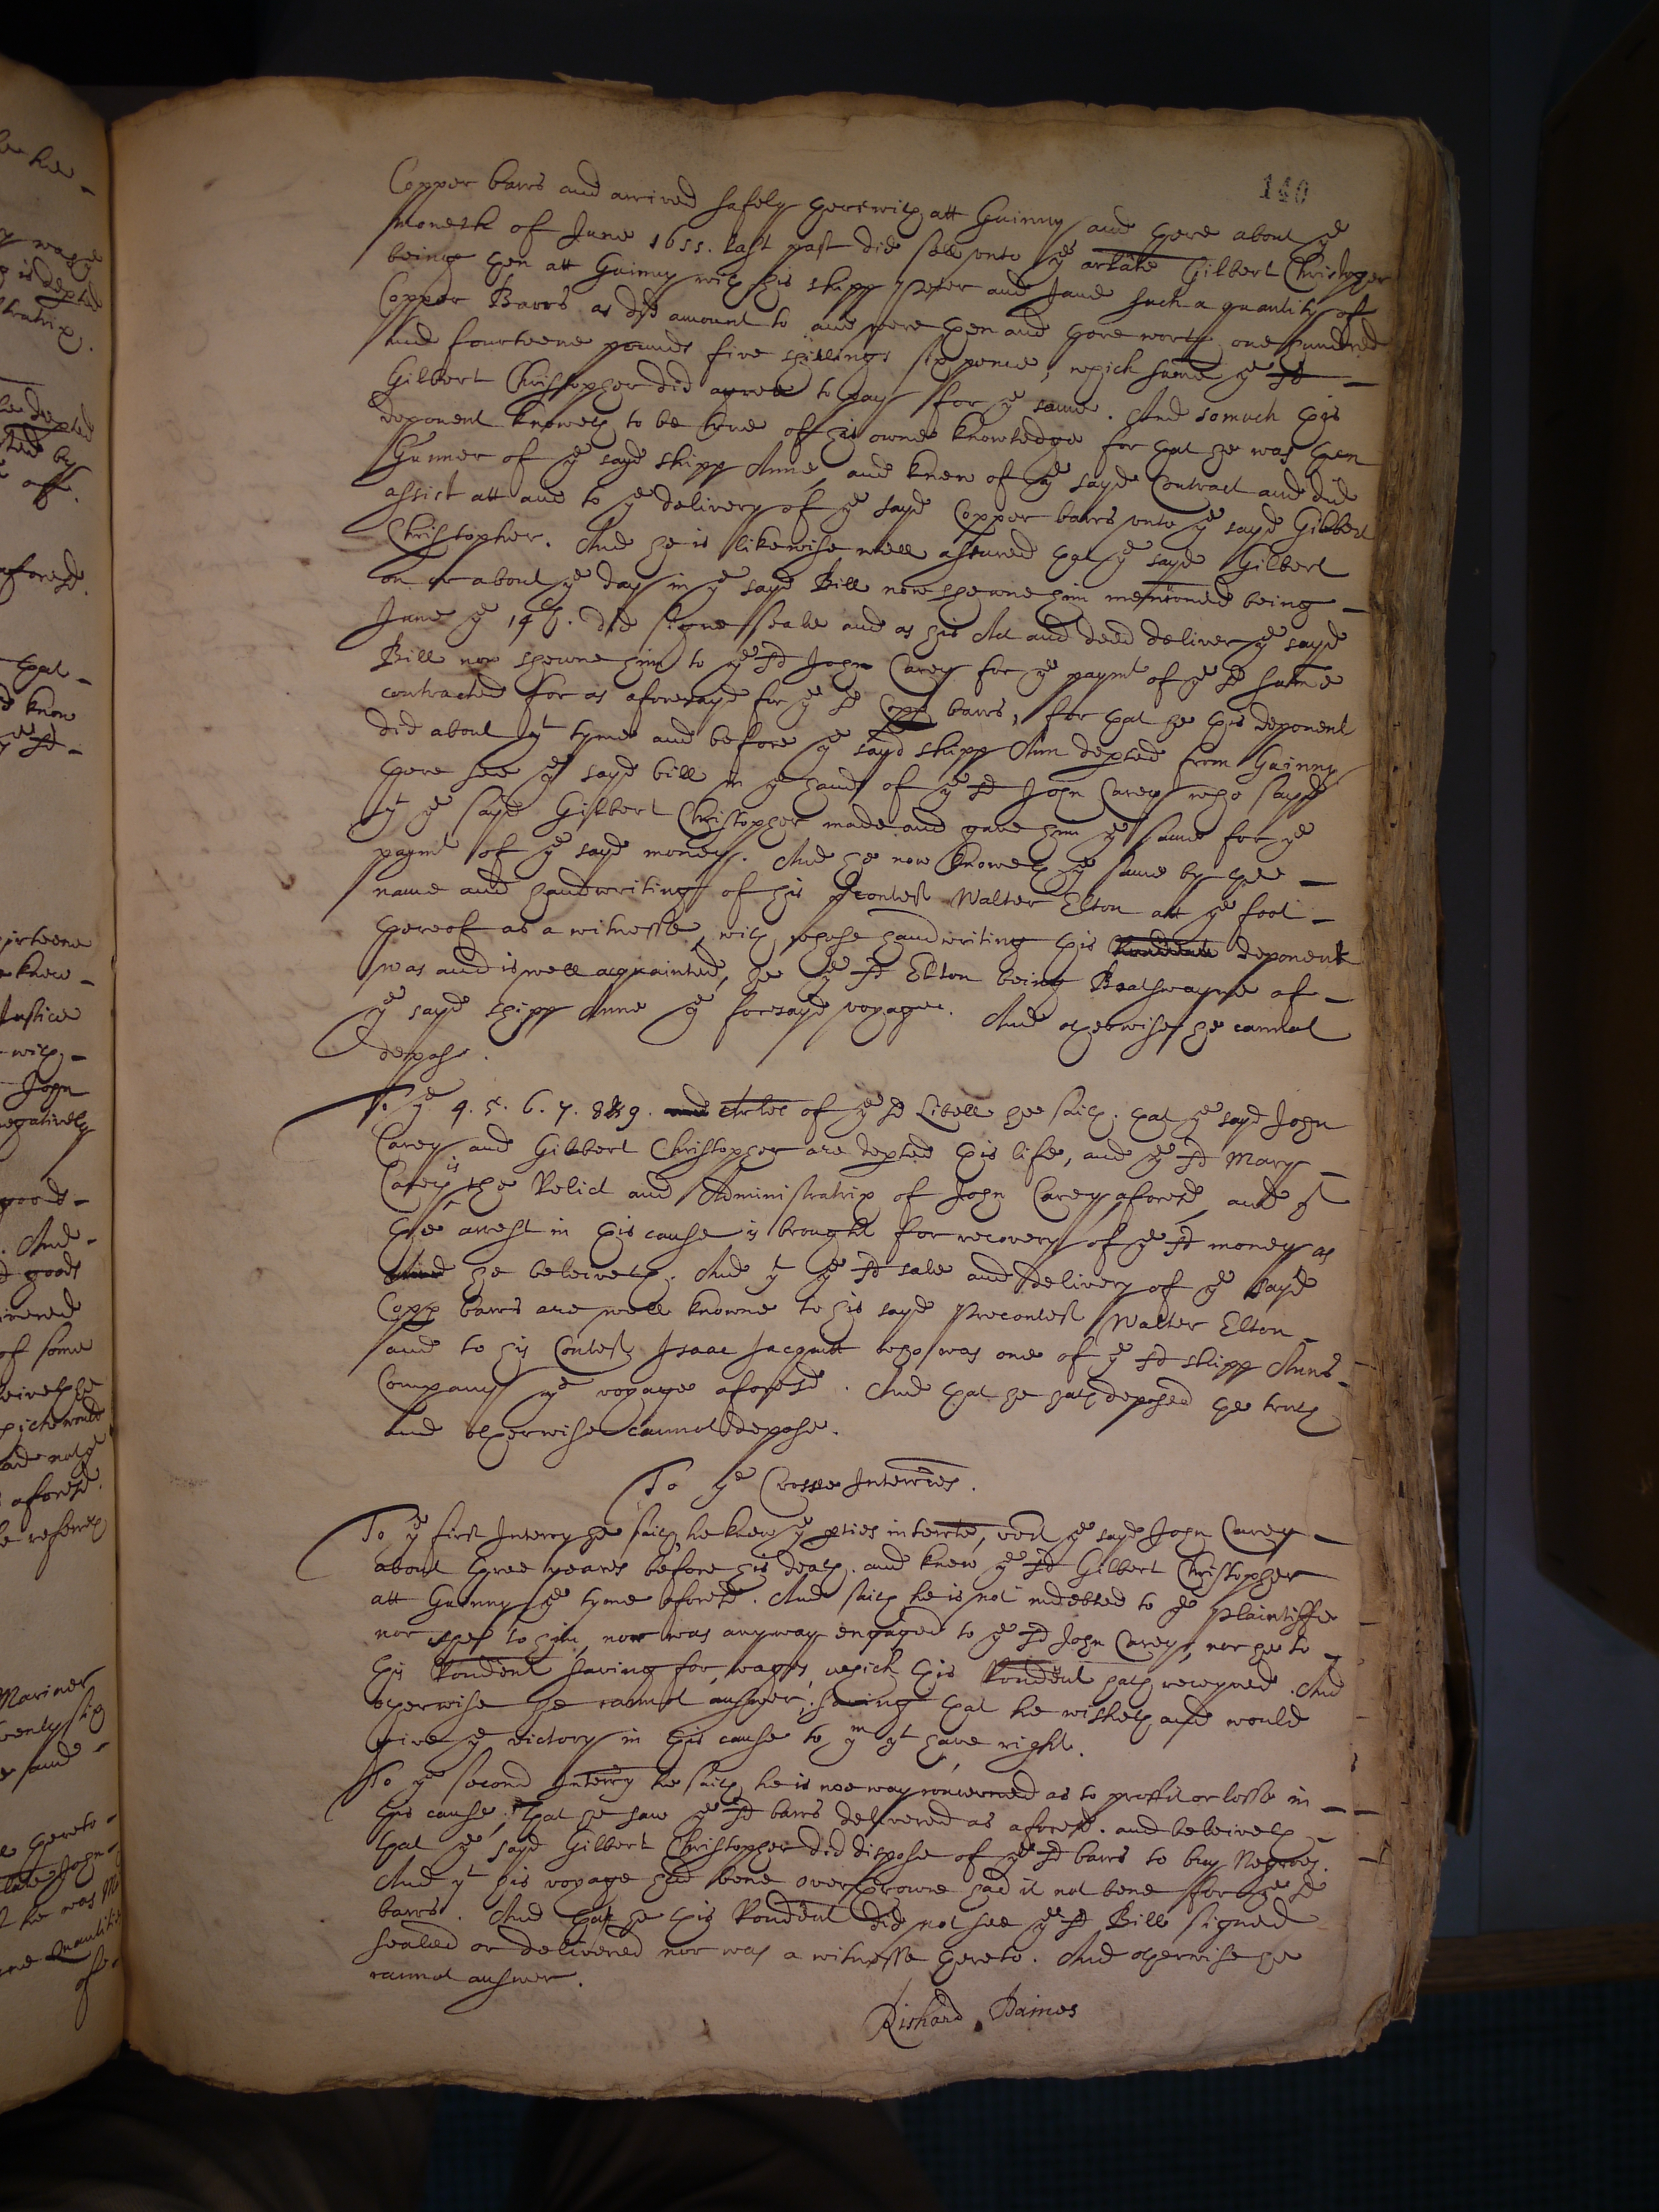 140
Copper barrs and arrived safely therewith att Guinny and there about ye
moneth of June 1655. last past did sell unto ye arlate Gilbert Christopher
being then att Guinny with his shipp Peter and Jane such a quantity of
Copper Barrs as did amount to and were then and there worth one hundred
and fourteene pounds five shillings six pence, which summe ye sd
Gilbert Christopher did agree to pay for ye same. And somuch this
deponent knoweth to be true of his owne knowledge for that he was then
Gunner of ye sayd shipp Anne, and knew of ye sayd Contract and did
assist att and to ye delivery of ye sayd Copper barrs unto ye sayd Gilbert
Christopher. And he is likewise well assured that ye sayd Gilbert
on or about ye day in ye sayd Bill now shewne him mentioned being
June ye 14th. did signe seale and as his Act and deed deliver ye sayd
Bill now shewne him to ye sd John Carey for ye paymt of ye sd summe
contracted for as aforesayd for ye sd Copp barrs, for that he this deponent
did about yt tyme and before ye sayd shipp Ann depted from Guinny
there see ye sayd bill in ye hands of ye sd John Carey who sayd
yt ye sayd Gilbert Christopher made and gave him ye same for ye
paymt of ye sayd money. And he now knoweth ye same by the
name and handwriting of his precontest Walter Elton att ye foot
thereof as a witnesse, with whose handwriting this deponent
was and is well acquainted, he ye sd Elton being Boatswayne of
ye sayd shipp Anne ye foresayd voyage. And otherwise he cannot
depose.
To ye 4. 5. 6. 7. 8 & 9. and Arles of ye sd Libell he saith. that ye sayd John
Carey and Gilbert Christopher are depted this life, and ye sd Mary
Carey is the Relict and Administratrix of John Carey aforesd, and yt
the arrest in this cause is brought for recovery of ye sd money as
he beleiveth. And yt ye sd sale and delivery of ye sayd
Copp barrs are well knowne to his sayd Precontest Walter Elton
and to his Contest Isaac Jacquitt who was one of ye sd shipp Anns
Company ye voyage aforesd. And that he hath deposed the truth
and otherwise cannot depose.
To ye Crosse Interries.
To ye first Interry he saith he knew ye pties interrte, vizt ye sayd John Carey
about three yeares before his death. and knew ye sd Gilbert Christopher
att Guinny ye tyme aforesd. And saith he is not indebted to ye Plaintiffe
nor shee to him, nor was anyway engaged to ye sd John Carey, nor he to
this Rondent saving for wages, which this Rondent hath receyved. And
otherwise he cannot answer, saving that he wisheth and would
give ye victory in this cause to ym yt have right.
To ye second Interry he saith he is noe way concerned as to proffit or losse in
this cause, that he saw ye sd barrs delivered as aforesd. and beleiveth
that ye sayd Gilbert Christopher did dispose of ye sd barrs to buy Negroes.
And yt his voyage had bene overthrowne had it not bene for ye sd
barrs. And that he this Rondent did not see ye sd Bill signed
sealed or delivered nor was a witnesse thereto. And otherwise he
cannot answer.
Richard Baines